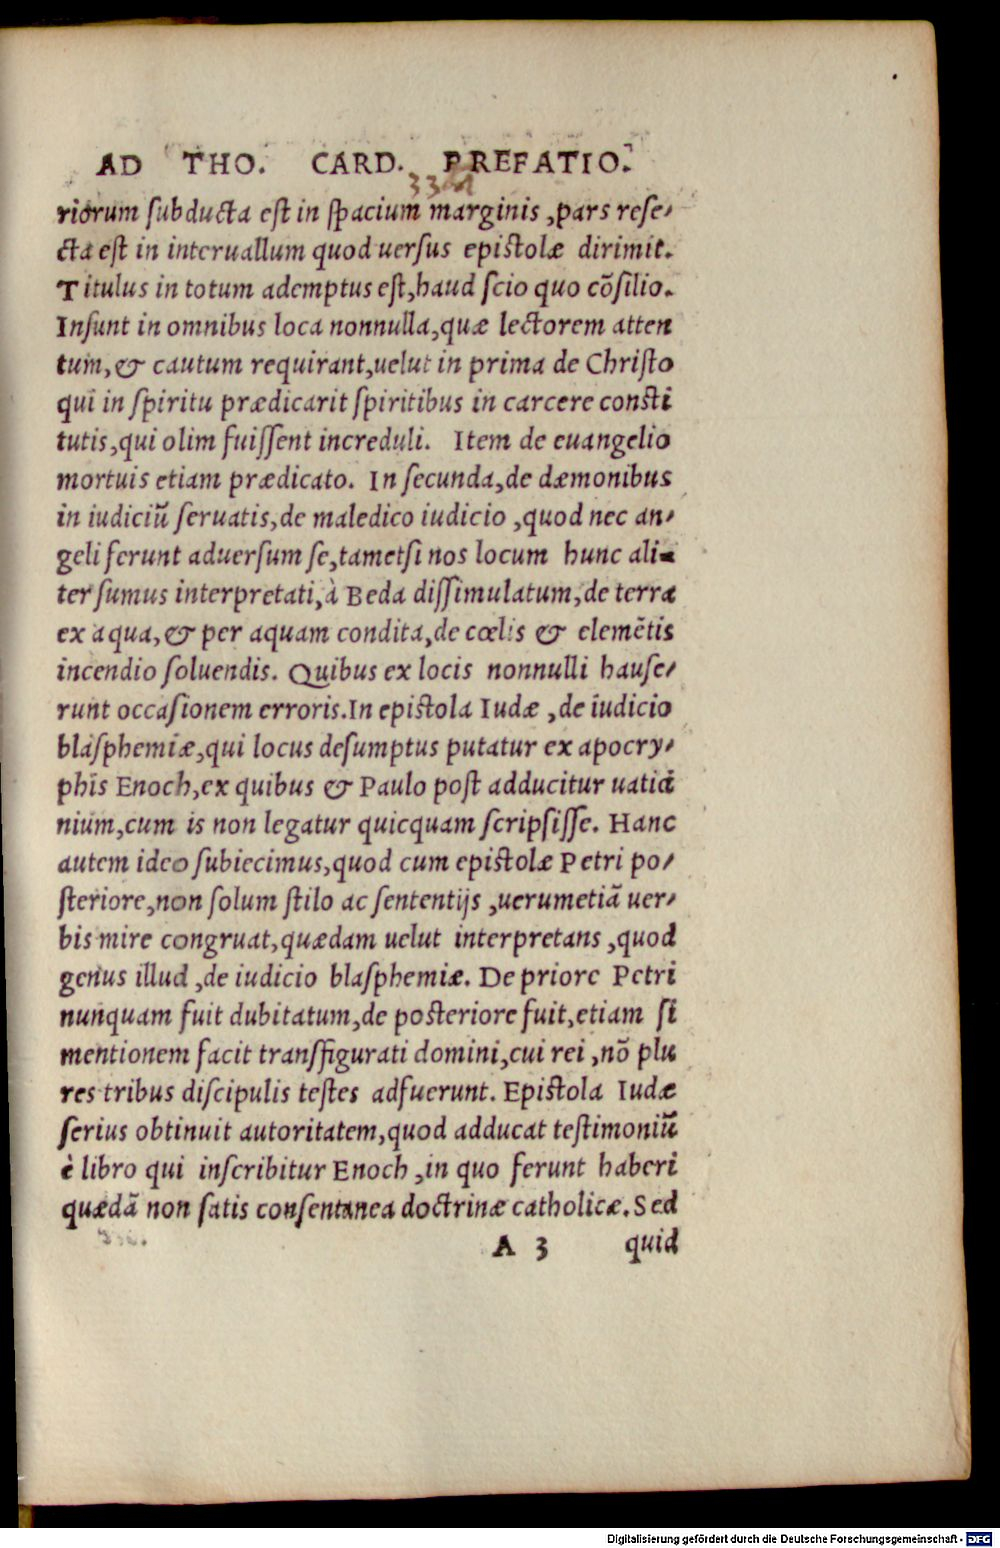 AD THO. CARD. PREFATIO.
riorum subducta est in spacium marginis, pars rese-
cta est in interuallum quod uersus epistolæ dirimit.
Titulus in totum ademptus est, haud scio quo cõsilio.
Insunt in omnibus loca nonnulla, quæ lectorem atten
tum, & cautum requirant, uelut in prima de Christo
qui in spiritu prædicarit spiritibus in carcere consti
tutis, qui olim fuissent increduli. Item de euangelio
mortuis etiam prædicato. In secunda, de dæmonibus
in iudiciũ seruatis, de maledico iudicio, quod nec an-
geli ferunt aduersum se, tametsi nos locum hunc ali-
ter sumus interpretati, à Beda dissimulatum, de terra
ex aqua, & per aquam condita, de cœlis & elemẽtis
incendio soluendis. Quibus ex locis nonnulli hause-
runt occasionem erroris. In epistola Iudæ, de iudicio
blasphemiæ, qui locus desumptus putatur ex apocry-
phis Enoch, ex quibus & Paulo post adducitur uatici
nium, cum is non legatur quicquam scripsisse. Hanc
autem ideo subiecimus, quod cum epistolæ Petri po-
steriore, non solum stilo ac sententijs, uerumetiã uer-
bis mire congruat, quædam uelut interpretans, quod
genus illud, de iudicio blasphemiæ. De priore Petri
nunquam fuit dubitatum, de posteriore fuit, etiam si
mentionem facit transfigurati domini, cui rei, nõ plu
res tribus discipulis testes adfuerunt. Epistola Iudæ
serius obtinuit autoritatem, quod adducat testimoniũ
è libro qui inscribitur Enoch, in quo ferunt haberi
quædã non satis consentanea doctrinæ catholicæ. Sed
A 3 quid
Digitalisierung gefördert durch die Deutsche Forschungsgemeinschaft - DFG